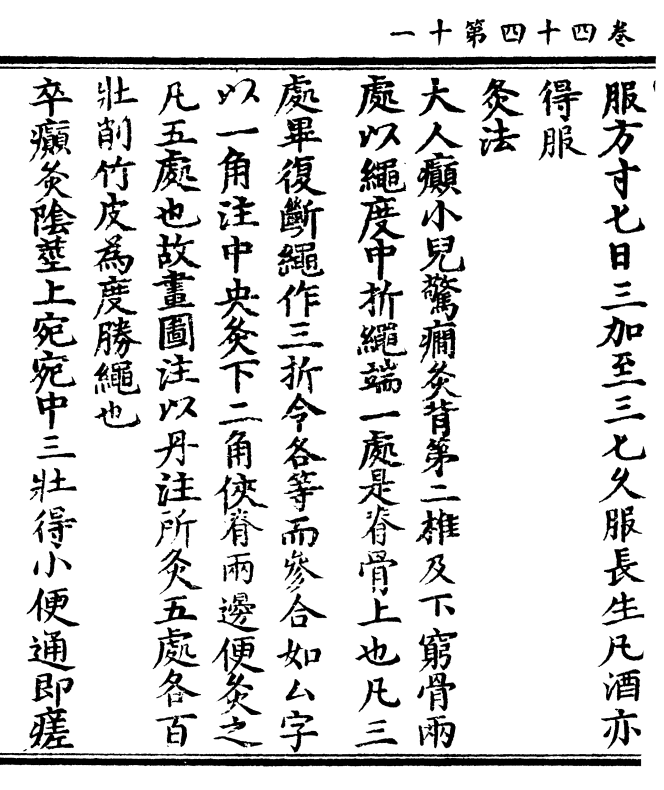 卷四十四第十一
服方寸匕日三加至三匕久服長生凡酒亦
得服
灸法
大人癲小兒驚癇灸背第二椎及下窮骨兩
處以繩度中折繩端一處是脊骨上也凡三
處畢復斷繩作三折令各等而參合如厶字
以一角注中央灸下二角俠脊兩邊便灸之
凡五處也故畫圖注以丹注所灸五處各百
壯削竹皮為度勝繩也
卒癲灸陰莖上宛宛中三壯得小便通即瘥